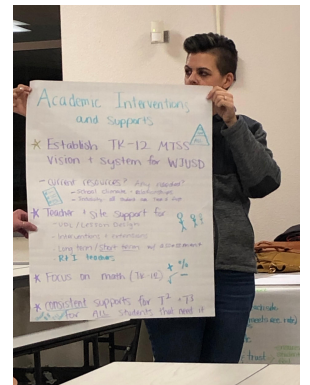 Academic Interventions
and Supports
* Establish TK-12 MTSS
Vision + System for WJUSD
- Current resources? Any needed?
* Teacher + Site Support for
- UDL/Lesson Design
- Interventions + extensions
Long term/short term
RtI teachers
* Focus on math (TK-12)
+ %
* consistent supports for T2 + T3
for ALL students that need it
trust